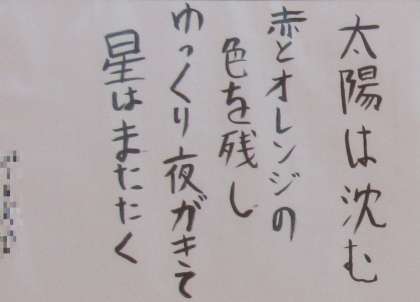 太陽は沈む
赤とオレンジの
色を残し
ゆっくり夜がきて
星はまたたく